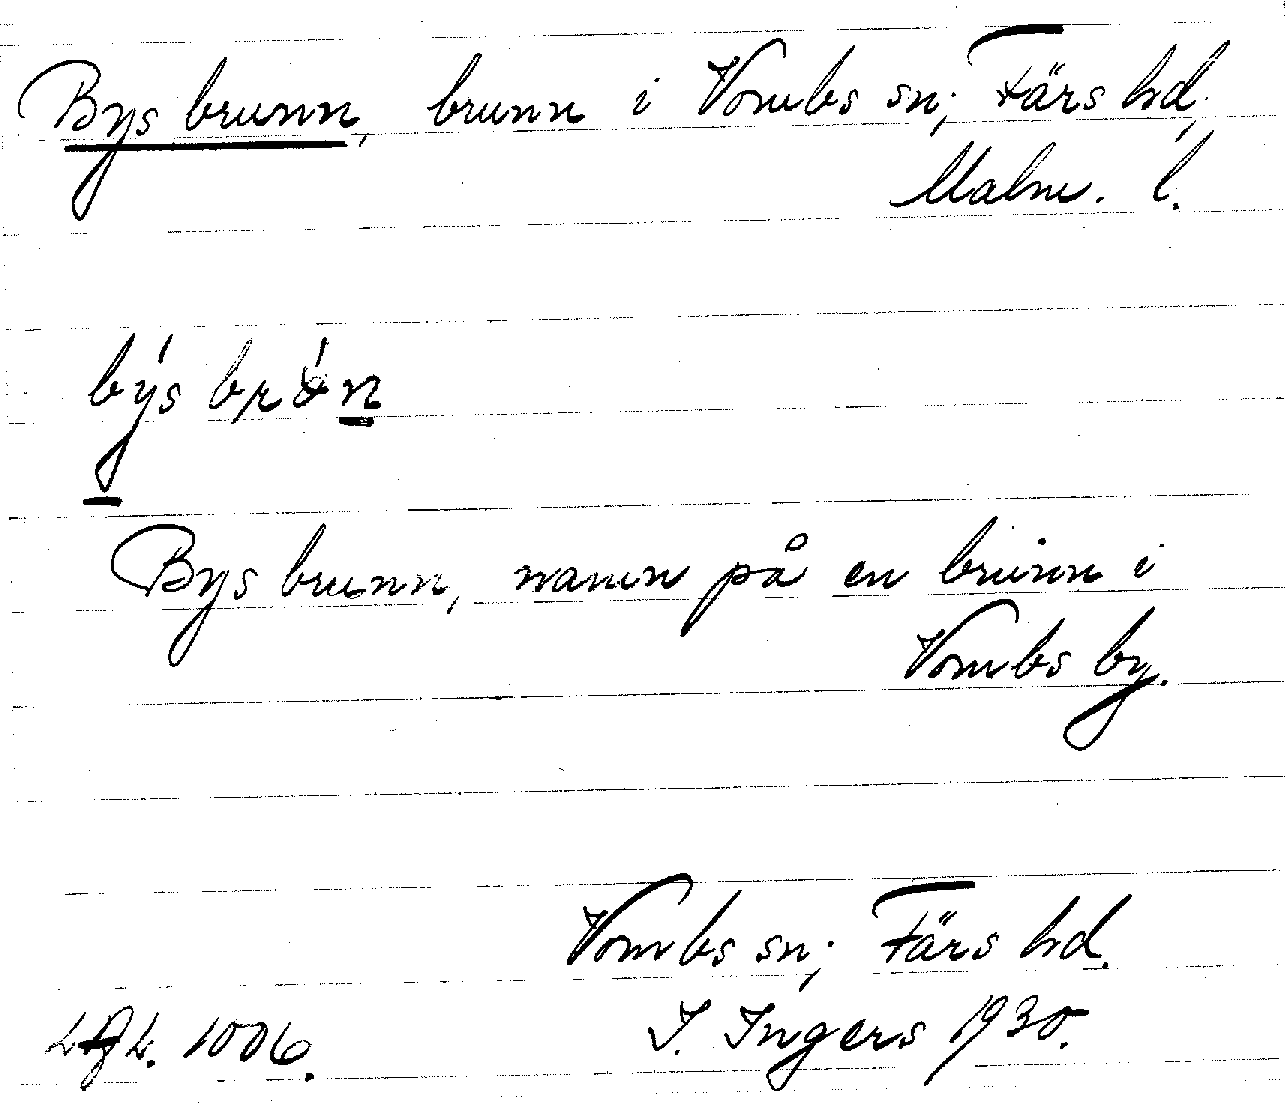 Bys brunn, brunn i Vombs sn; Färs hd,
Malm. l.
býs brǿn
Bys brunn, namn på en brunn i
Vombs by.
Vombs sn; Färs hd.
I. Ingers 1930.
1006.